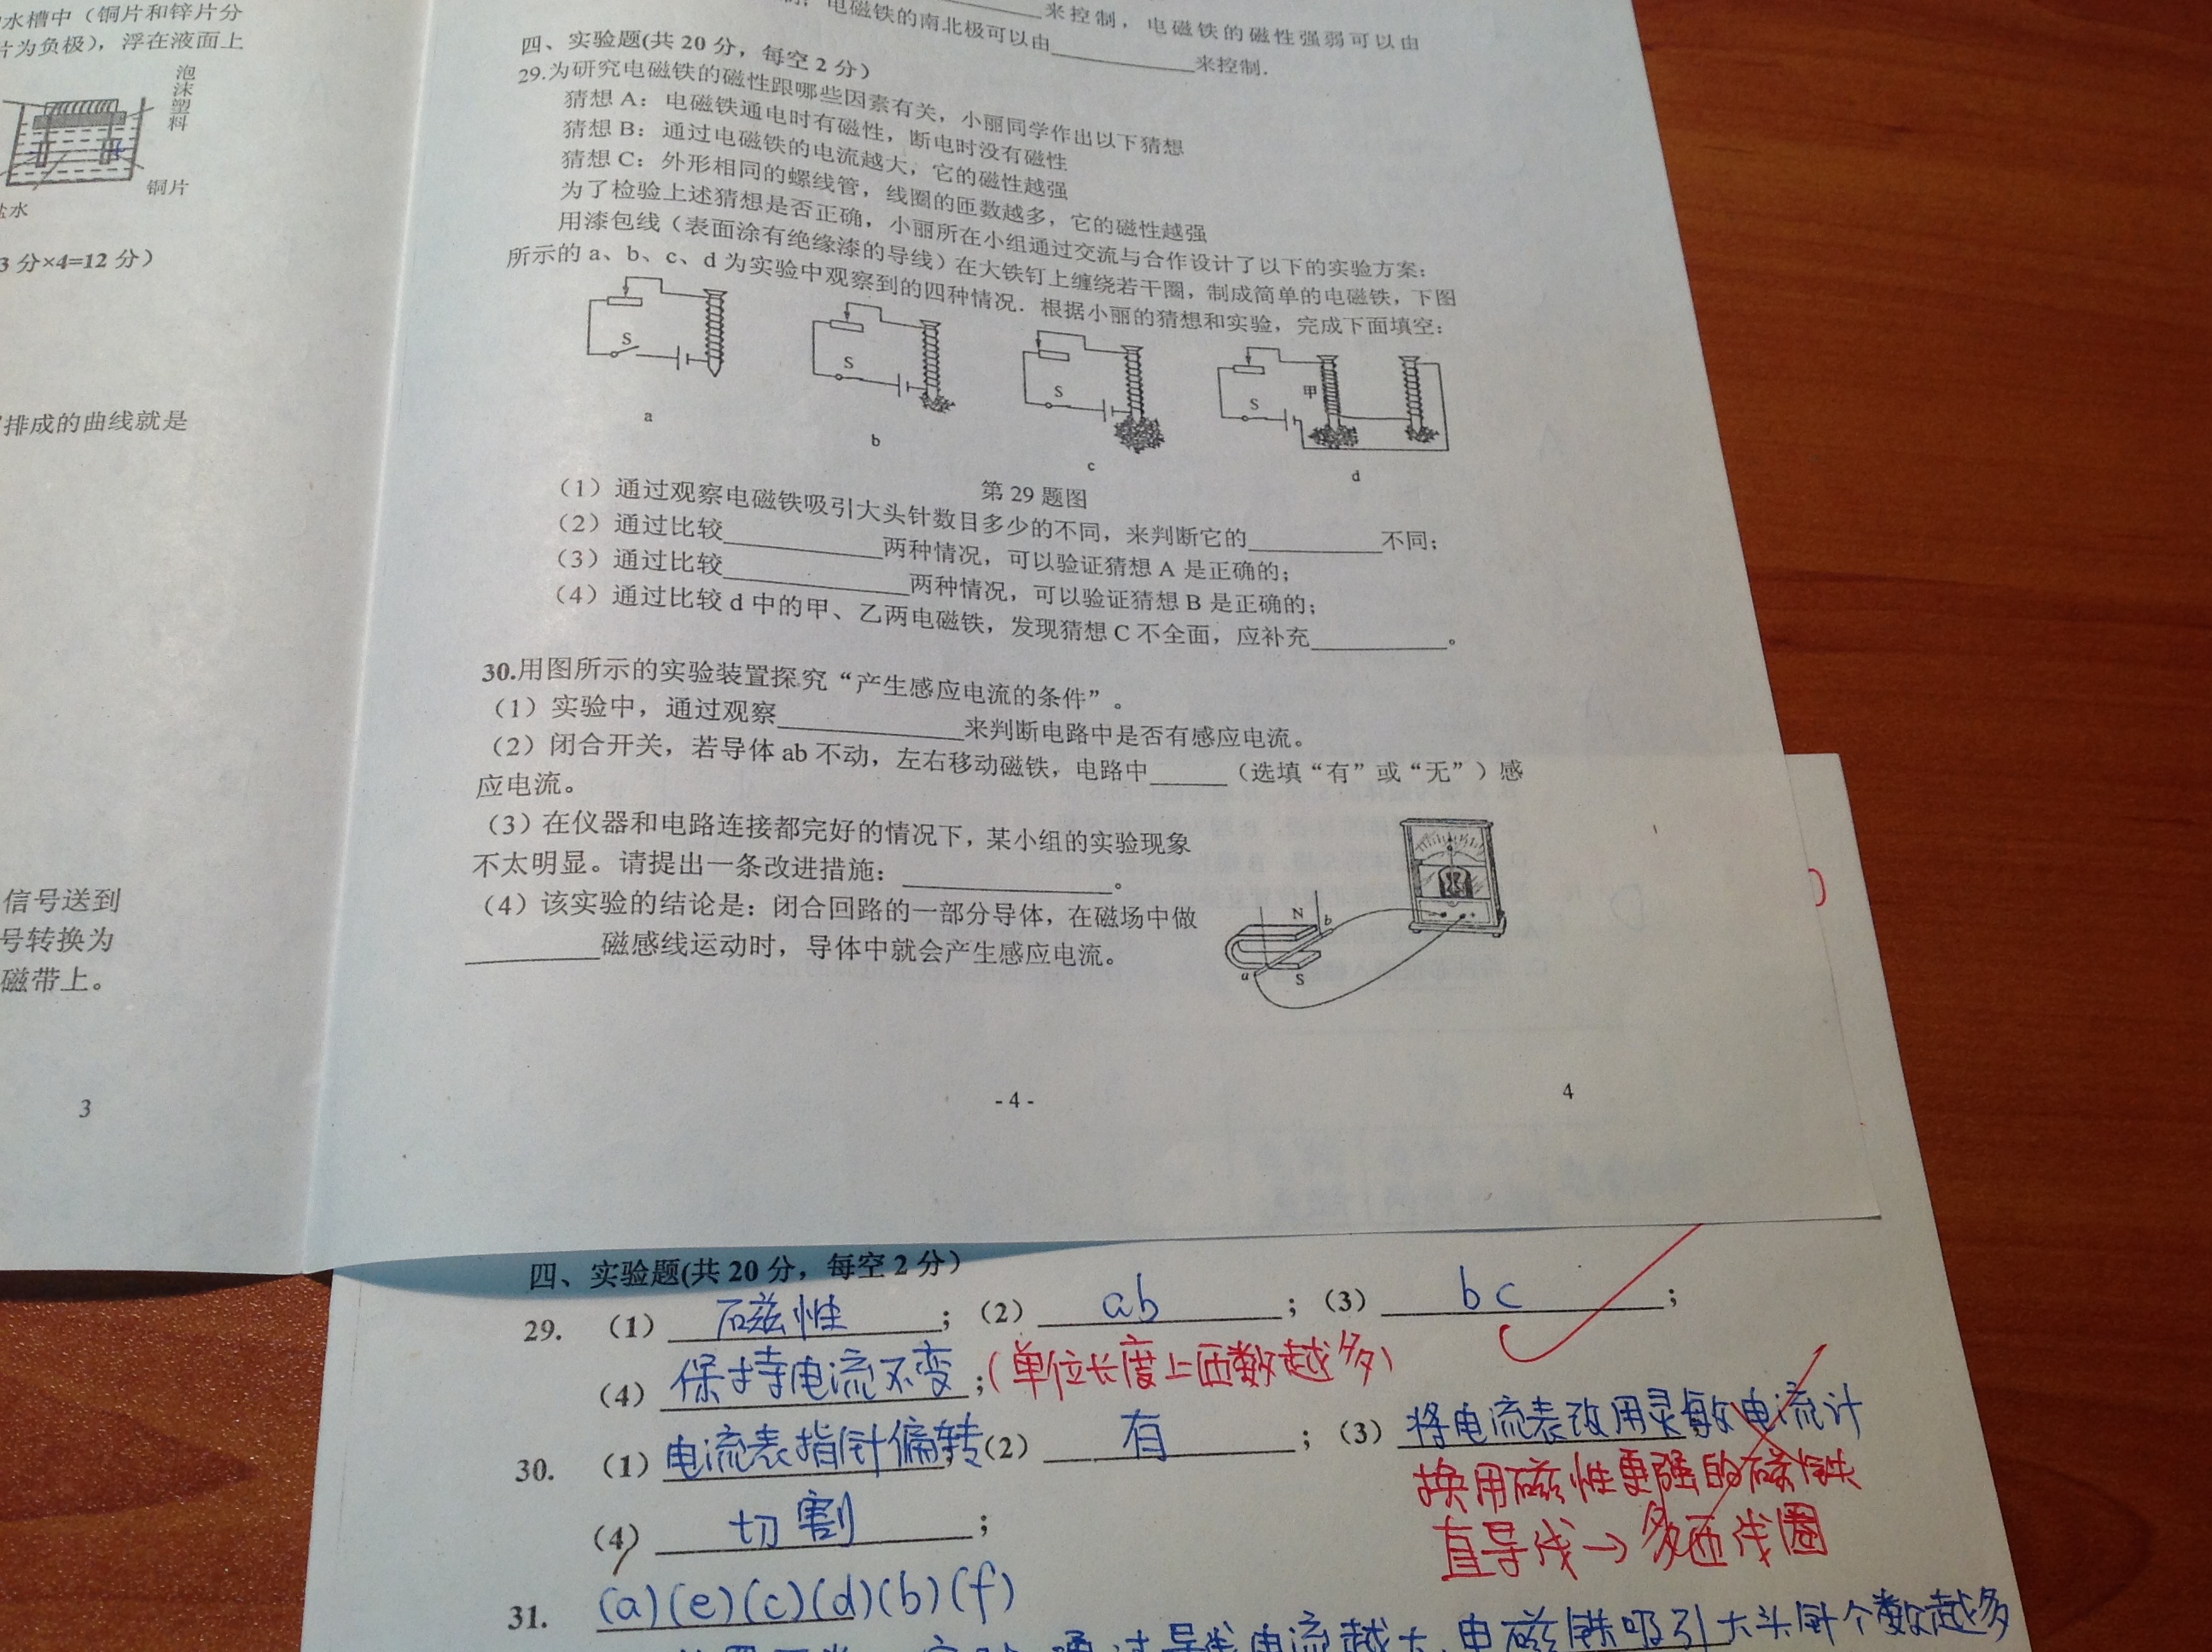 水槽中（铜片和锌片分
片为负极），浮在液面上
泡沫塑料
铜片
盐水
3 分×4=12 分）
排成的曲线就是
信号送到
号转换为
磁带上。
3
来控制，电磁铁的磁性强弱可以由
电磁铁的南北极可以由________来控制.
四、实验题(共 20 分，每空 2 分）
29.为研究电磁铁的磁性跟哪些因素有关，小丽同学作出以下猜想
猜想 A：电磁铁通电时有磁性，断电时没有磁性
猜想 B：通过电磁铁的电流越大，它的磁性越强
猜想 C：外形相同的螺线管，线圈的匝数越多，它的磁性越强
为了检验上述猜想是否正确，小丽所在小组通过交流与合作设计了以下的实验方案：
用漆包线（表面涂有绝缘漆的导线）在大铁钉上缠绕若干圈，制成简单的电磁铁，下图
所示的 a、b、c、d 为实验中观察到的四种情况．根据小丽的猜想和实验，完成下面填空：
S
S
S
S
甲
a
b
c
d
第 29 题图
（1）通过观察电磁铁吸引大头针数目多少的不同，来判断它的________不同；
（2）通过比较________两种情况，可以验证猜想 A 是正确的；
（3）通过比较________两种情况，可以验证猜想 B 是正确的；
（4）通过比较 d 中的甲、乙两电磁铁，发现猜想 C 不全面，应补充________。
30.用图所示的实验装置探究“产生感应电流的条件”。
（1）实验中，通过观察________来判断电路中是否有感应电流。
（2）闭合开关，若导体 ab 不动，左右移动磁铁，电路中____（选填“有”或“无”）感
应电流。
（3）在仪器和电路连接都完好的情况下，某小组的实验现象
不太明显。请提出一条改进措施：________。
（4）该实验的结论是：闭合回路的一部分导体，在磁场中做
________磁感线运动时，导体中就会产生感应电流。
N
b
a
S
- 4 -
4
四、实验题(共 20 分，每空 2 分）
29. （1）磁性；（2）ab；（3）bc；
（4）保持电流不变；（单位长度上匝数越多）
30. （1）电流表指针偏转（2）有；（3）将电流表改用灵敏电流计
换用磁性更强的磁铁
（4）切割；
直导线→多匝线圈
31. (a)(e)(c)(d)(b)(f)
电流越大，电磁铁吸引大头针个数越多